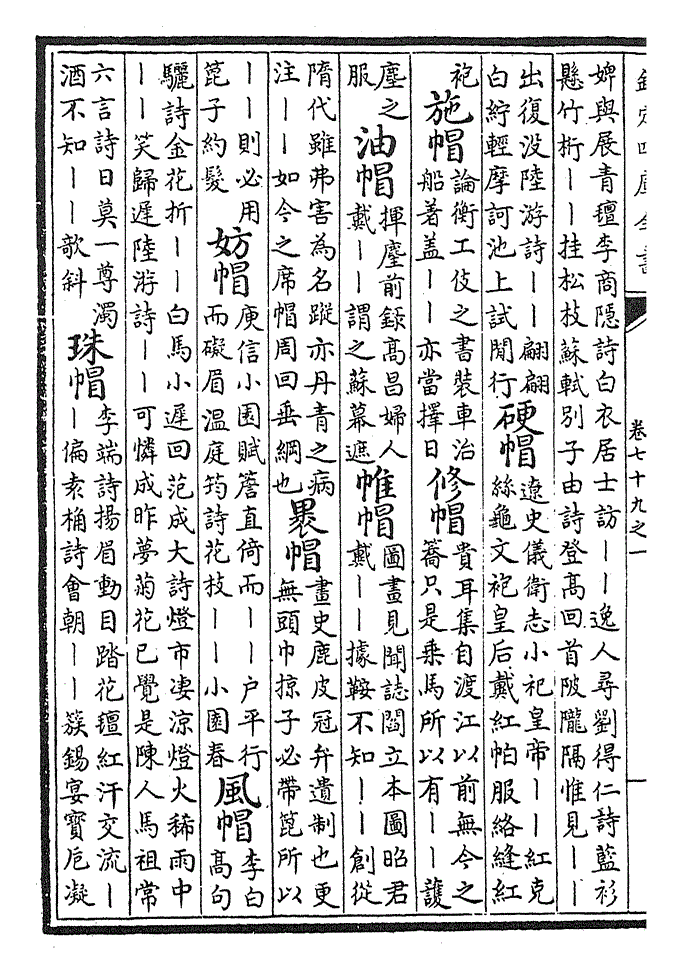 欽定四庫全書
卷七十九之一
婢與展青氊李商隱詩白衣居士訪——逸人尋劉得仁詩藍衫
懸竹桁——挂松枝蘇軾别子由詩登髙回首陂隴隔惟見——
出復没陸游詩——翩翩
白紵輕摩訶池上試閒行
硬帽
遼史儀衛志小祀皇帝——紅克
絲龜文袍皇后戴紅帕服絡縫紅
袍
施帽
論衡工伎之書裝車治
船著盖——亦當擇日
修帽
貴耳集自渡江以前無今之
轎只是乗馬所以有——護
塵之
服
油帽
揮麈前録髙昌婦人
戴——謂之蘇幕遮
帷帽
圖畫見聞誌閻立本圖昭君
戴——據鞍不知——創從
隋代雖弗害為名蹤亦丹青之病
注——如今之席帽周回垂綱也
裹帽
畫史鹿皮冠弁遺制也更
無頭巾掠子必帶箆所以
——則必用
箆子約髮
妨帽
庾信小園賦簷直倚而——户平行
而礙眉溫庭筠詩花枝——小園春
風帽
李白
髙句
驪詩金花折——白馬小遲回范成大詩燈市凄涼燈火稀雨中
——笑歸遲陸游詩——可憐成昨夢菊花已覺是陳人馬祖常
六言詩日莫一尊濁
酒不知——欹斜
珠帽
李端詩揚眉動目踏花氊紅汗交流—
—偏袁桷詩會朝——簇錫宴寳巵凝